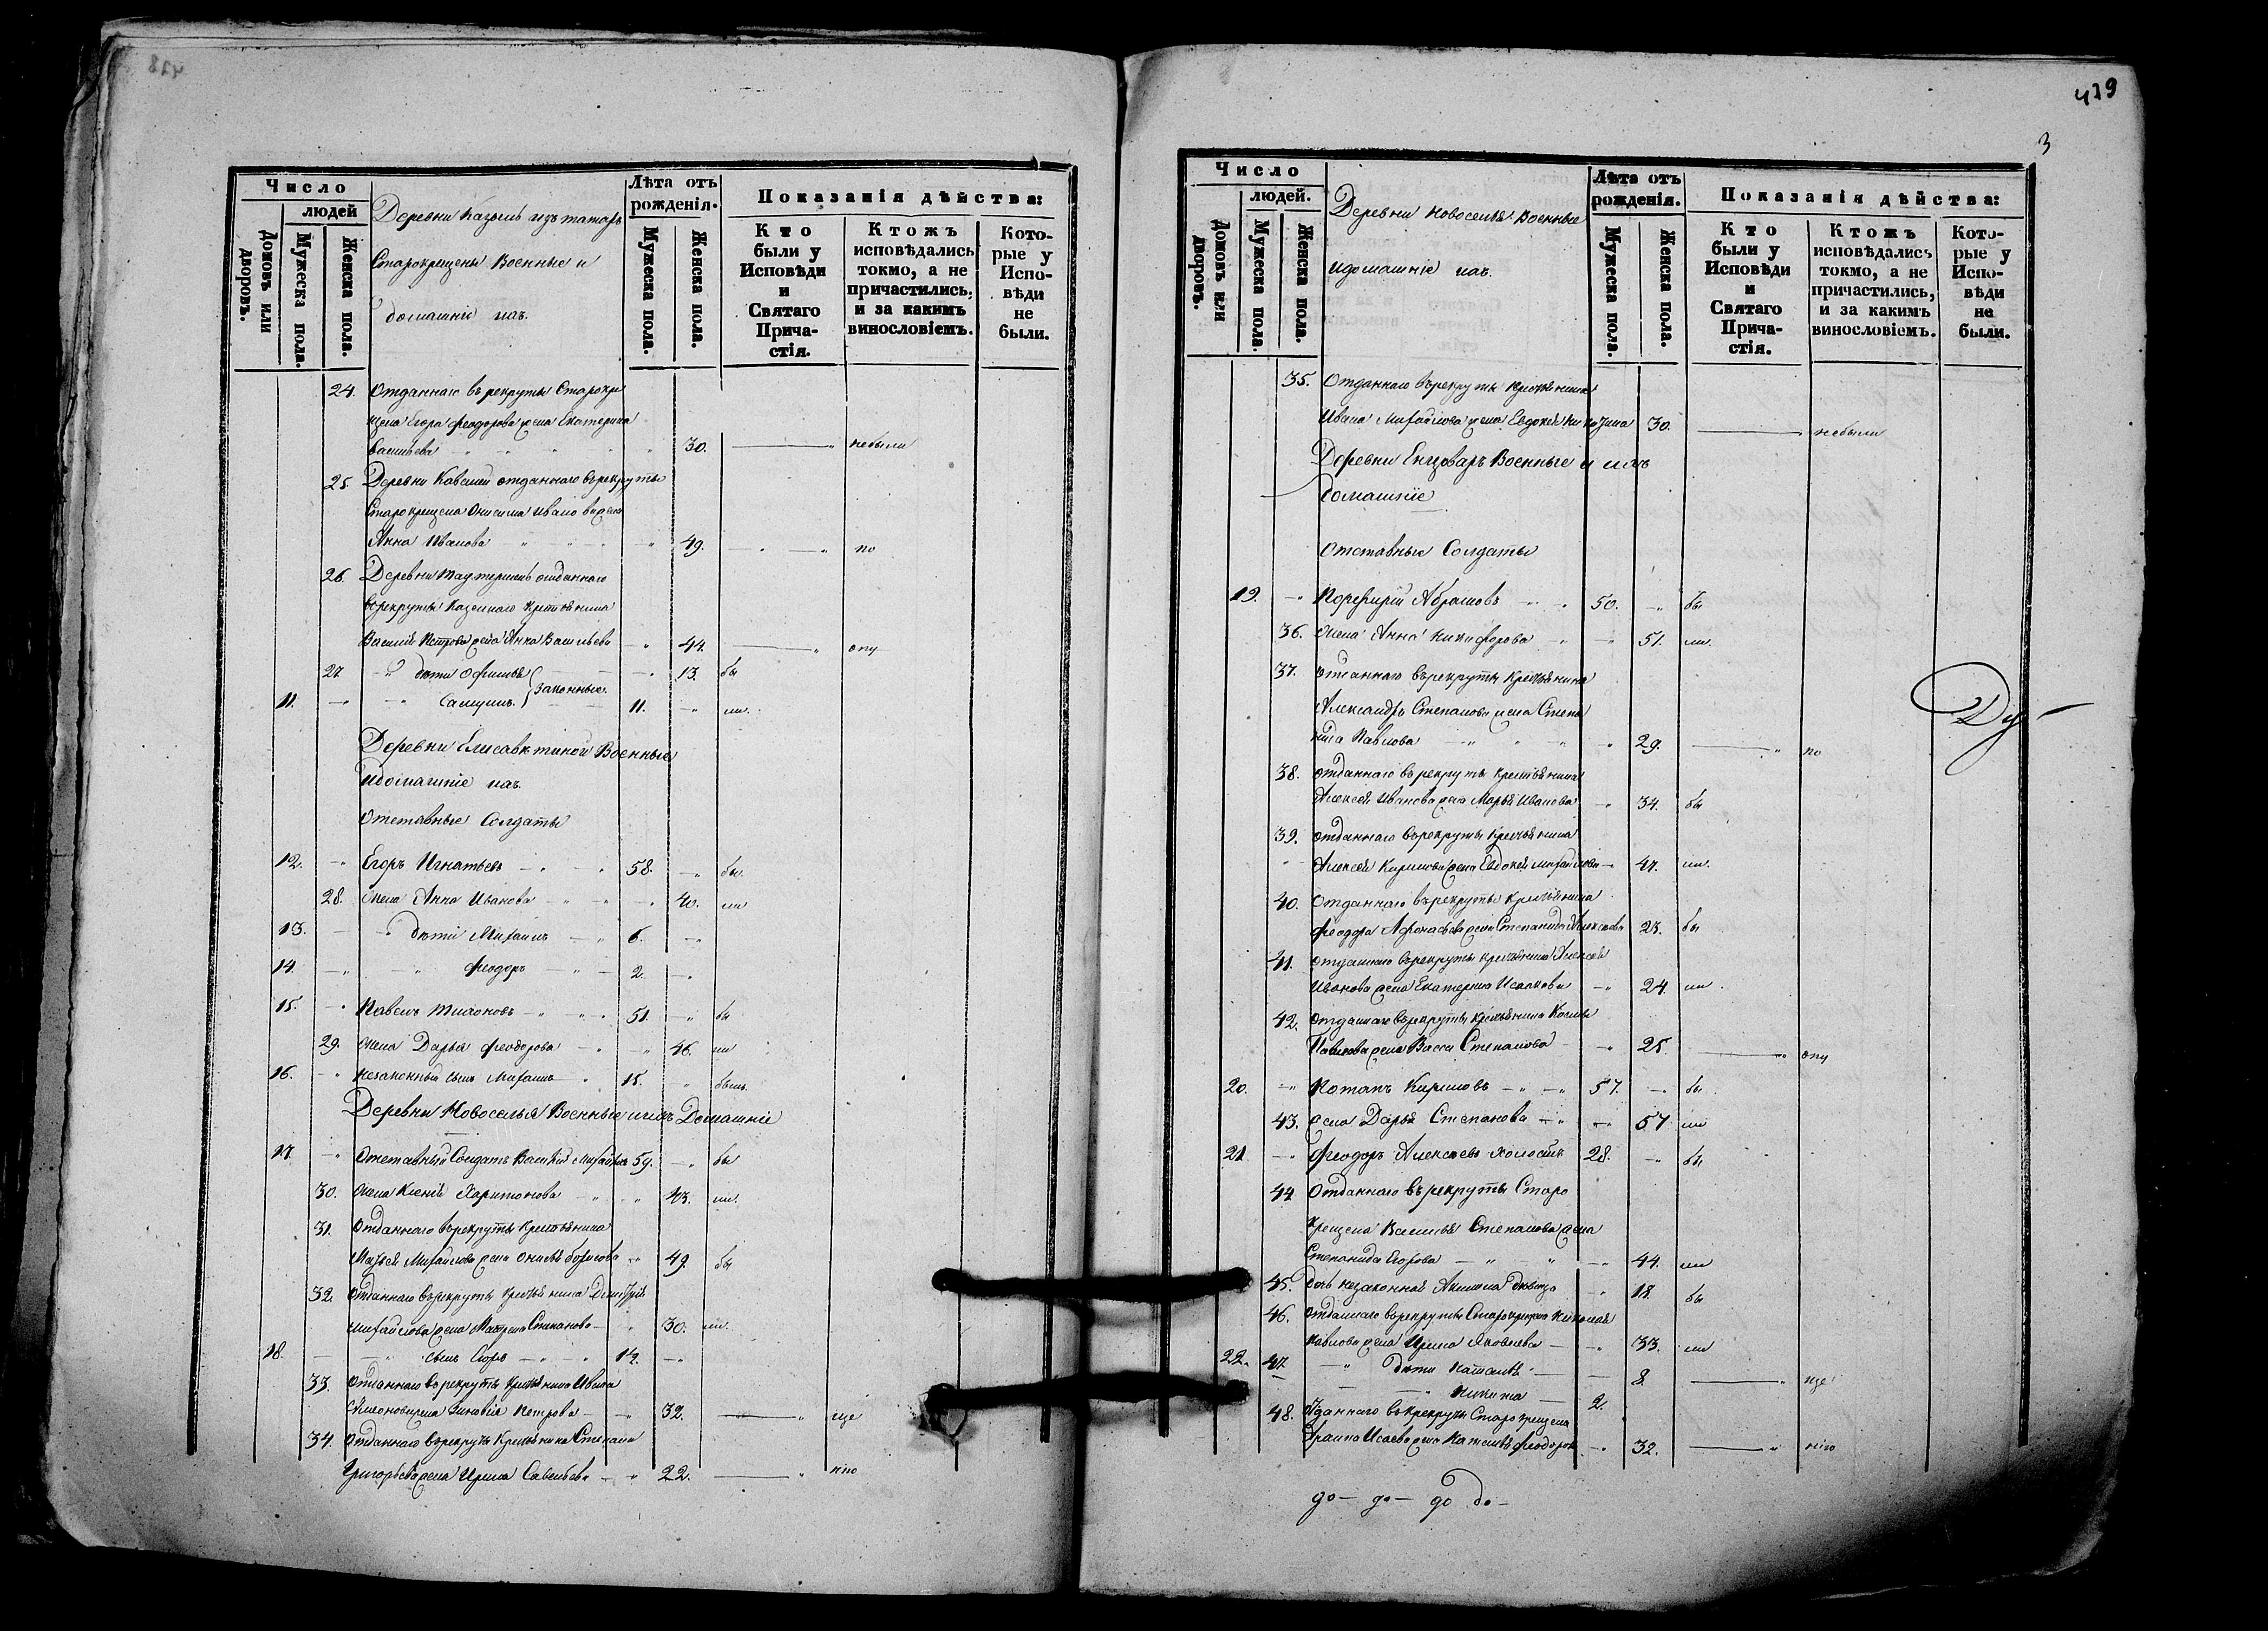 418
Число
людей
Домовъ или дворовъ.
Мужеска пола.
Женска пола.
Деревни изъ татаръ
Старокрещены Военные и
домашніе ихъ.
Лѣта отъ рожденія.
Мужеска пола.
Женска пола.
Показанія дѣйства:
Кто были у Исповѣди и Святаго Прича-стія.
Ктожъ исповѣдались токмо, а не причастились, и за какимъ винословіемъ.
Кото-рые у Испо-вѣди не были.
24. Отданнаго въ рекруты Старокре
щена Егора Феодорова жена Екатерина
Васильева 30. небыли
25. Деревни отданнаго въ рекруты
Старокрещена Онисима Иванова жена
Анна Иванова 49. по
26. Деревни отданнаго
въ рекруты Казеннаго Крестьянина
Василія Петрова жена Анна Васильева 44. опу
27 дѣти 13. бы
законные.
11. 11. ли.
Деревни Елисаветиной Военные
и домашніе ихъ.
Отставные Солдаты
12. Егоръ Игнатьевъ 58. бы
28. Жена Анна Иванова 40. ли
13. дѣти Михаилъ 6.
14. Феодоръ 2.
15. Павелъ Тихоновъ 51. бы
29. Жена Дарья Феодорова 46. ли
16. незаконный сынъ Михаилъ 15. былъ.
Деревни Новоселья Военные и ихъ Домашніе
17. Отставный Солдатъ Василій Михайловъ 59. бы
30. Жена Харитонова 43. ли.
31. Отданнаго въ рекруты Крестьянина
Михайлова жена Борисова 49. бы
32. Отданнаго въ рекруты Крестьянина Димитрія
Михайлова жена Матрена Степанова 30. ли.
18. сынъ Егоръ 12.
33. Отданнаго въ рекруты Крестьянина Ивана
Симонова жена Зиновія Петрова 32. еще
34. Отданнаго въ рекруты Крестьянина Степана
Григорьева жена Ирина Савельева 22. что
439
3
Число
людей.
Домовъ или дворовъ.
Мужеска пола.
Женска пола.
Деревни Новоселья Военные
и домашніе ихъ.
Лѣта отъ рожденія.
Мужеска пола.
Женска пола.
Показанія дѣйства:
Кто были у Исповѣди и Святаго Прича-стія.
Ктожъ исповѣдались токмо, а не причастились, и за какимъ винословіемъ.
Кото-рые у Испо-вѣди не были.
35. Отданнаго въ рекруты Крестьянина
Ивана Михайлова жена Евдокея 30. небыли
Деревни Енговаръ Военные и ихъ
домашніе
Отставные Солдаты
19. Порфирій Абрамовъ 50. бы
36. Жена Анна Никифорова 51. ли.
37. Отданнаго въ рекруты Крестьянина
Александра Степанова жена Степа
нида Павлова 29. по
Ду
38. отданнаго въ рекруты Крестьянина
Алексея Иванова жена Марья Иванова 34. бы
39. отданнаго въ рекруты Крестьянина
Алексея Кирилова жена Евдокея Михайлова 47. ли.
40. Отданнаго въ рекруты Крестьянина
Феодора Афонасьева жена Степанида Алексеева 23. бы
41. Отданнаго въ рекруты Крестьянина Алексея
Иванова жена Екатерина Исаакова 24. ли
42. Отданнаго въ рекруты Крестьянина Козмы
Павлова жена Васса Степанова 25. опу
20. Потапъ Кириловъ 57. бы
43. Жена Дарья Степанова 57 ли
21 Феодоръ Алексеевъ Холостъ 28. бы
44 Отданнаго въ рекруты Старо
крещена Василья Степанова жена
Степанида Егорова 44. ли
45. Дочь незаконной Акилина Девица 18. бы
46. отданнаго въ рекруты Старокрещена Николая
Павлова жена Ирина Яковлева 33. ли
22. 47. дѣти Наталья 8. еще
Никита 2.
48. Отданнаго въ рекруты Старокрещена
Исаева жена Наталья Феодорова 32. что
до — до — до до —